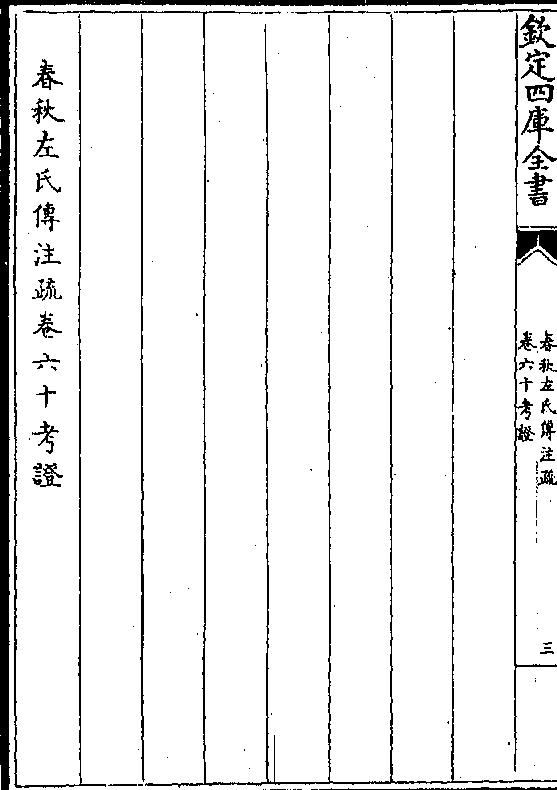 欽定四庫全書
春秋左氏傳注疏
卷六十考證
三
春秋左氏傳注疏卷六十考證